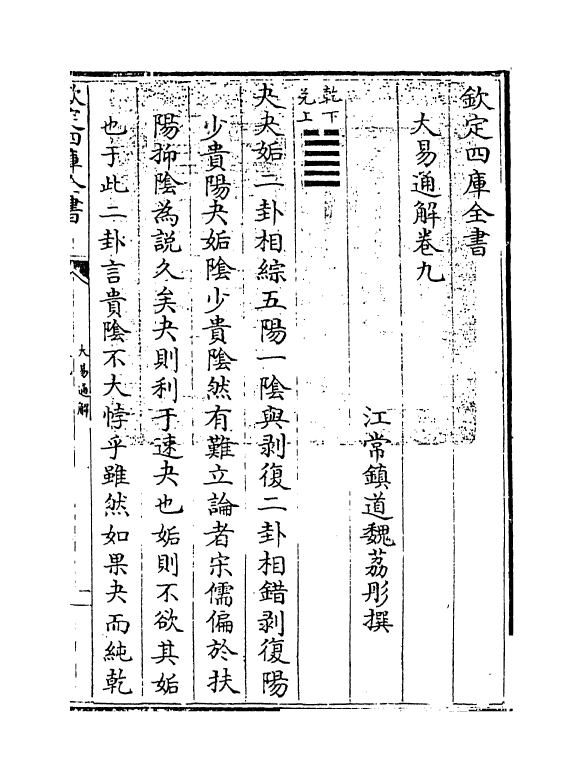 欽定四庫全書
大易通解卷九
江常鎮道魏荔彤撰
乾下
兌上
夬夬姤二卦相綜五陽一陰與剥復二卦相錯剥復陽
少貴陽夬姤陰少貴陰然有難立論者宋儒偏於扶
陽抑陰為說久矣夬則利于速夬也姤則不欲其姤
也于此二卦言貴陰不大悖乎雖然如果夬而純乾
欽定四庫全書
大易通解